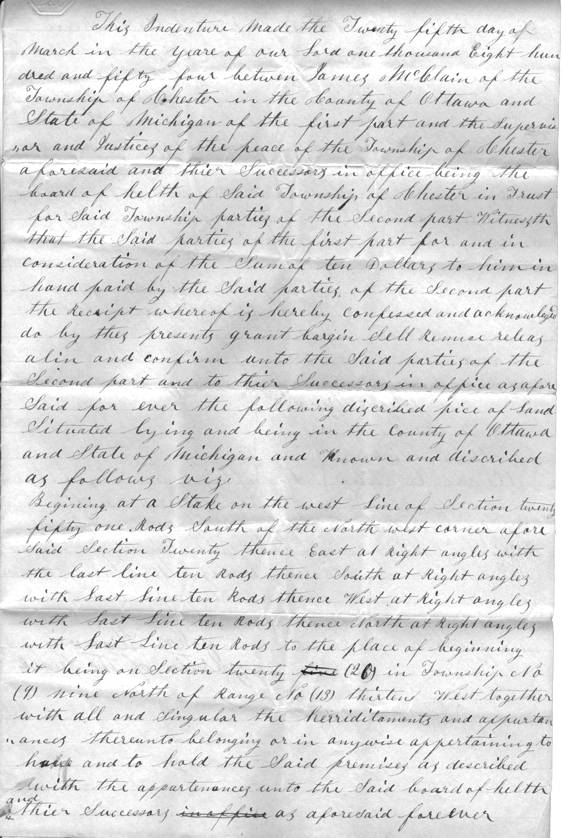 This Indenture Made the Twenty fifth day of
March in the Yeare of our Lord one thousand Eight hun
dred and fifty four betwen James McClain of the
Township of Chester in the County of Ottawa and
State of Michigan of the first part and the Supervis
or and Justices of the peace of the Township of Chester
aforesaid and thier Successors in office being the
board of helth of Said Township of Chester in Trust
for Said Township parties of the Second part Witnesth
that the Said parties of the first part for and in
consideration of the Sum of ten Dollars to him in
hand paid by the Said parties of the Second part
the Receipt whereof is hereby Confessed and acknowleged
do by thes presents grant bargin Sell Remise releas
alin and confirm unto the Said parties of the
Second part and to thier Successors in office as afore
Said for ever the following discribed pice of Land
Situated lying and being in the County of Ottawa
and State of Michigan and Known and discribed
as follows viz
Begining at a Stake on the west Line of Section twenty
fifty one Rods South of the North west corner afore
Said Section Twenty thence East at Right angles with
the last line ten Rods thence South at Right angles
with Last Line ten Rods thence West at Right angles
with Last Line ten Rods thence North at Right angles
with Last Line ten Rods to the place of beginning
it being on Section twenty (20) in Township No
(9) nine North of Range No (13) thirten West together
with all and Singular the herriditaments and appurtan
ances thereunto belonging or in anywise appertaining to
have and to hold the Said premises as described
with the appartenances unto the Said board of helth
and thier Successors in office as aforesaid forever